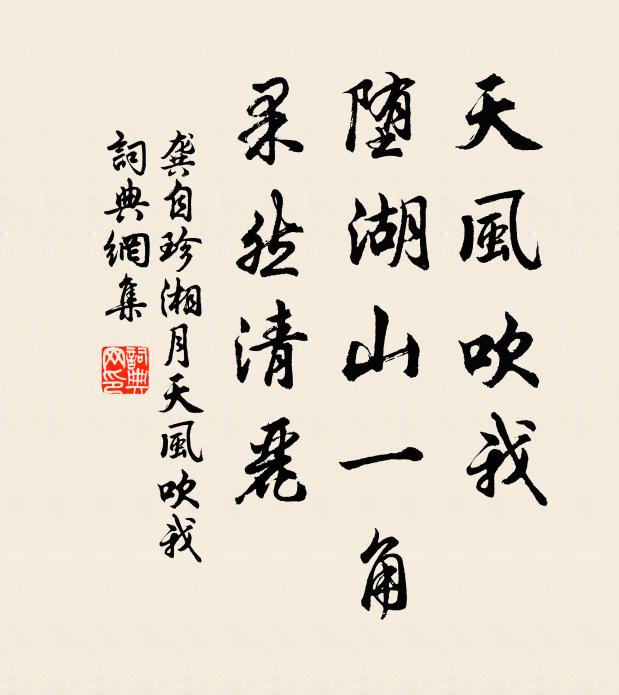 天風吹我
堕湖山一角
果然清麗
龔自珍湘月天風吹我
詞典網集
詞典
网印